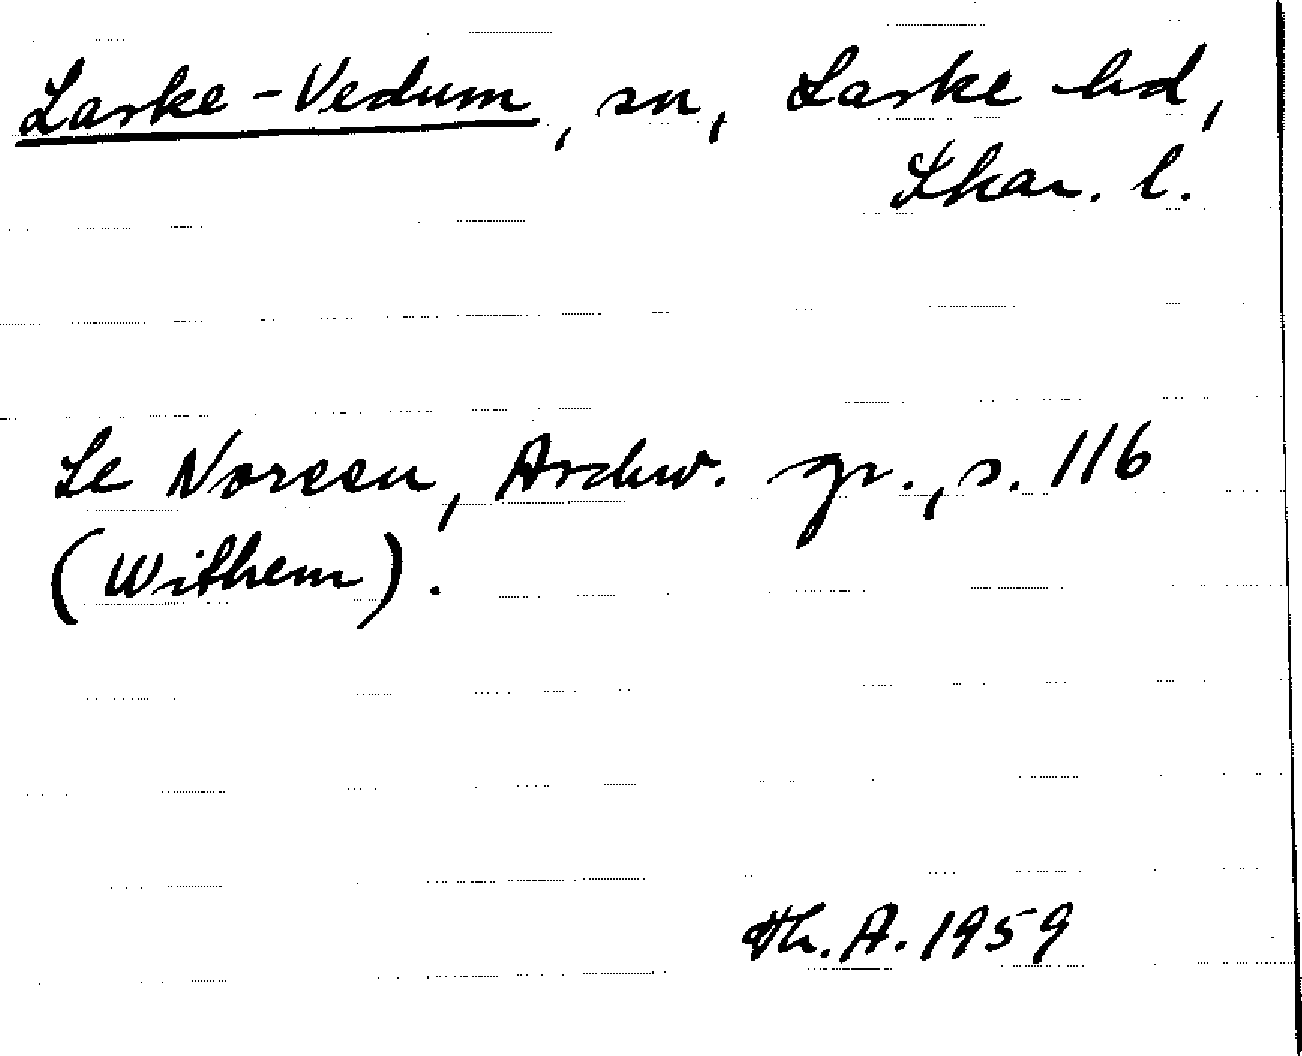 Laske-Vedum, sn, Laske hd,
Skar. l.
Se Noreen, Ärtemv. gr., s. 116
(Withem).
Th. A. 1959